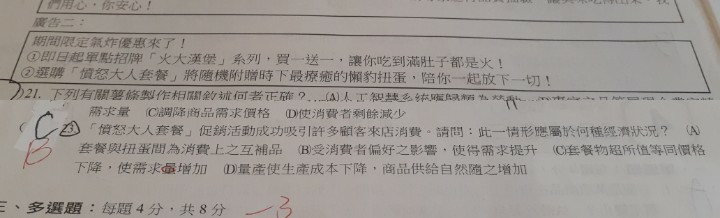 們用心，你安心！
廣告二：
期間限定氣炸優惠來了！
①即日起單點招牌「火大漢堡」系列，買一送一，讓你吃到滿肚子都是火！
②選購「憤怒大人套餐」將隨機附贈時下最療癒的懶豹扭蛋，陪你一起放下一切！
21. 下列有關薯條製作相關敘述何者正確？
需求量 (C)調降商品需求價格 (D)使消費者剩餘減少
C 23. 「憤怒大人套餐」促銷活動成功吸引許多顧客來店消費。請問：此一情形應屬於何種經濟狀況？ (A)
B 套餐與扭蛋間為消費上之互補品 (B)受消費者偏好之影響，使得需求提升 (C)套餐物超所值等同價格
下降，使需求量增加 (D)量產使生產成本下降，商品供給自然隨之增加
三、多選題：每題 4 分，共 8 分 -3